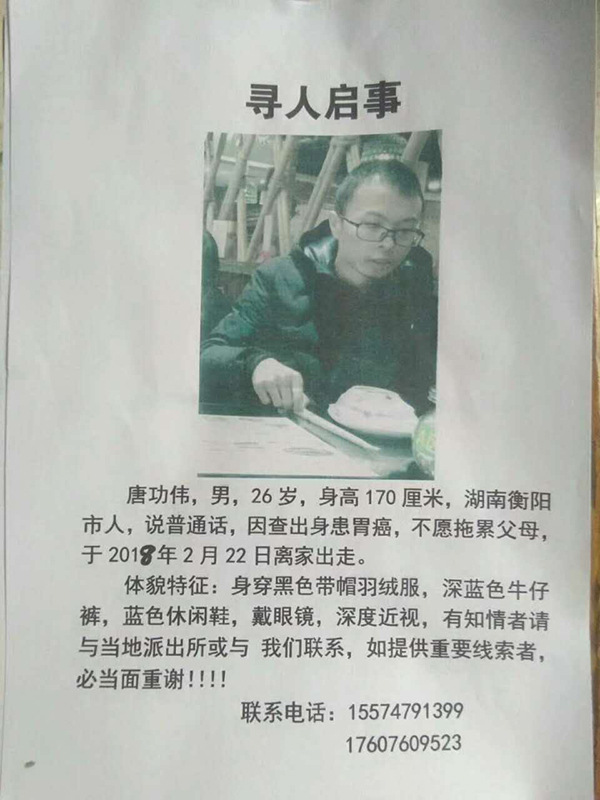 寻人启事
唐功伟，男，26岁，身高170厘米，湖南衡阳
市人，说普通话，因查出身患胃癌，不愿拖累父母，
于2018年2月22日离家出走。
体貌特征：身穿黑色带帽羽绒服，深蓝色牛仔
裤，蓝色休闲鞋，戴眼镜，深度近视，有知情者请
与当地派出所或与 我们联系，如提供重要线索者，
必当面重谢!!!!
联系电话：15574791399
17607609523